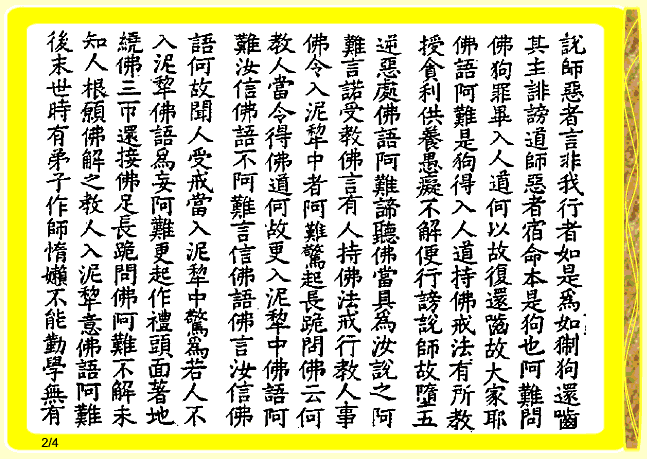 說師惡者言非我行者如是為如猘狗還嚙
其主誹謗道師惡者宿命本是狗也阿難問
佛狗罪畢入人道何以故復還嚙故大家耶
佛語阿難是狗得入人道持佛戒法有所教
授貪利供養愚癡不解便行謗說師故墮五
逆惡處佛語阿難諦聽佛當具為汝說之阿
難言諾受教佛言有人持佛法戒行教人事
佛令入泥犂中者阿難驚起長跪問佛云何
教人當令得佛道何故更入泥犂中佛語阿
難汝信佛語不阿難言信佛語佛言汝信佛
語何故聞人受戒當入泥犂中驚為若人不
入泥犂佛語為妄阿難更起作禮頭面著地
繞佛三帀還接佛足長跪問佛阿難不解未
知人根願佛解之教人入泥犂意佛語阿難
後末世時有弟子作師惰嬾不能勤學無有
2/4